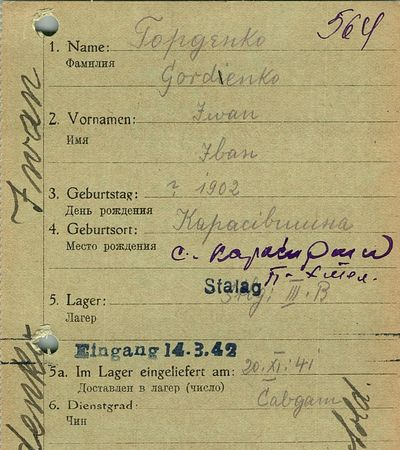 564
1. Name: Гордєнко
Фамилия
Gordienko
2. Vornamen: Iwan
Имя
Iван
3. Geburtstag: ? 1902
День рождения
4. Geburtsort: Карасiвшина
Место рождения с.
Stalag
5. Lager: III. B
Лагерь
Eingang 14.3.42
5a. Im Lager eingeliefert am: 20.XI.41
Доставлен в лагер (число)
6. Dienstgrad:
Чин
Iwan